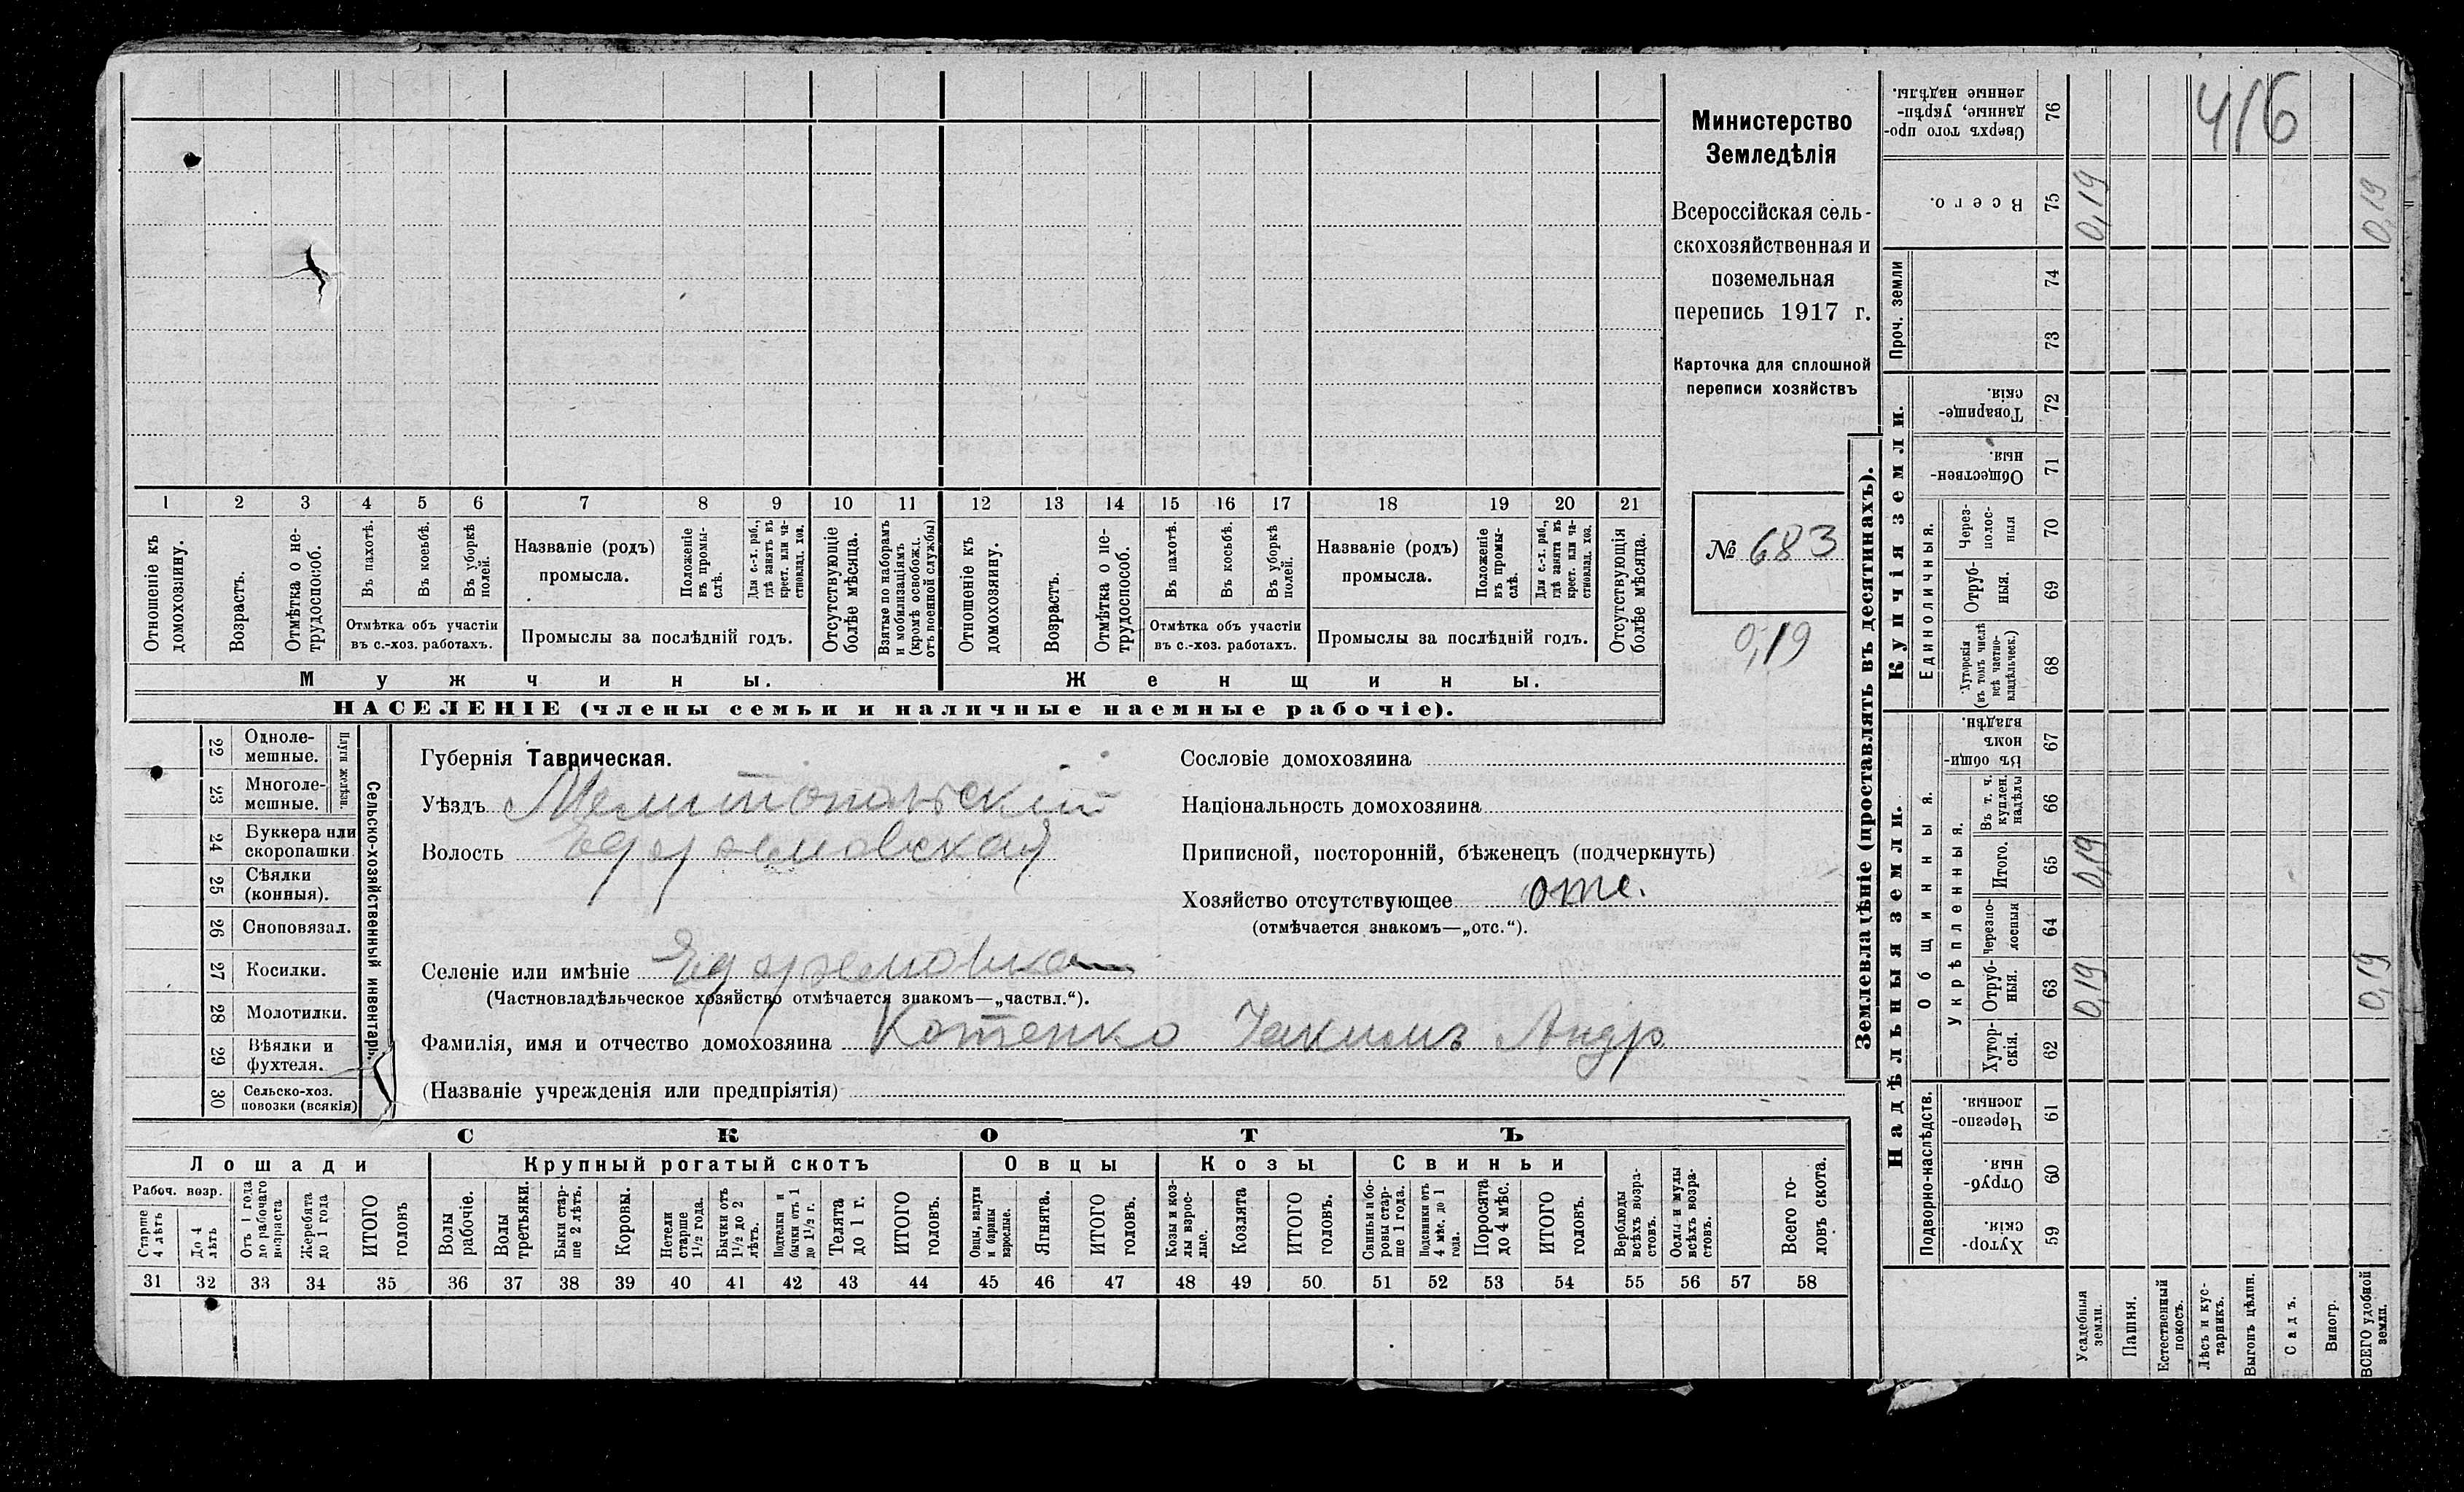 416
Министерство
Земледѣлія
Всероссійская сель-
скохозяйственная и
поземельная
перепись 1917 г.
Карточка для сплошной
переписи хозяйствъ
№ 683
0,19
1 2 3 4 5 6 7 8 9 10 11 12 13 14 15 16 17 18 19 20 21
Отношеніе къ домохозяину.
Возрастъ.
Отмѣтка о не-трудоспособ.
Въ пахотѣ.
Въ косьбѣ.
Въ уборкѣ полей.
Отмѣтка объ участіи
въ с.-хоз. работахъ.
Названіе (родъ)
промысла.
Положеніе въ промы-слѣ.
Для с.-х. раб., гдѣ занятъ въ крест. или ча-стновлад. хоз.
Промыслы за послѣдній годъ.
Отсутствующіе болѣе мѣсяца.
Взятые по наборамъ и мобилизаціямъ (кромѣ освобожд. отъ военной службы)
Отношеніе къ домохозяину.
Возрастъ.
Отмѣтка о не-трудоспособ.
Въ пахотѣ.
Въ косьбѣ.
Въ уборкѣ полей.
Отмѣтка объ участіи
въ с.-хоз. работахъ.
Названіе (родъ)
промысла.
Положеніе въ промы-слѣ.
Для с.-х. раб., гдѣ занята въ крест. или ча-стновлад. хоз.
Промыслы за послѣдній годъ.
Отсутствующія болѣе мѣсяца.
Мужчины.
Женщины.
НАСЕЛЕНІЕ (члены семьи и наличные наемные рабочіе).
22 Одноле-мешные.
23 Многоле-мешные.
Плуги желѣзн.
24 Буккера или скоропашки
25 Сѣялки (конныя).
26 Сноповязал.
27 Косилки.
28 Молотилки.
29 Вѣялки и фухтеля.
30 Сельско-хоз. повозки (всякія)
Сельско-хозяйственный инвентарь.
Губернія Таврическая.
Уѣздъ Мелитопольскій
Волость Ефремовская
Селеніе или имѣніе Ефремовка
(Частновладѣльческое хозяйство отмѣчается знакомъ—„частвл.“).
Фамилія, имя и отчество домохозяина Котенко Іакимъ Андр
(Названіе учрежденія или предпріятія)
Сословіе домохозяина
Національность домохозяина
Приписной, посторонній, бѣженецъ (подчеркнуть)
Хозяйство отсутствующее отс.
(отмѣчается знакомъ—„отс.“).
СКОТЪ
Лошади
Крупный рогатый скотъ
Овцы
Козы
Свиньи
Рабоч. возр.
Старше 4 лѣтъ
До 4 лѣтъ
Отъ 1 года до рабочаго возраста
Жеребята до 1 года
ИТОГО головъ
Волы рабочіе.
Волы третьяки.
Быки стар-ше 2 лѣтъ.
Коровы.
Нетели старше 1½ года.
Бычки отъ 1½ до 2 лѣтъ.
Подтелки и бычки отъ 1 до 1½ г.
Телята до 1 г.
ИТОГО головъ.
Овцы, валухи и бараны взрослые.
Ягнята.
ИТОГО головъ.
Козы и коз-лы взрос-лые.
Козлята
ИТОГО головъ.
Свиньи и бо-ровы стар-ше 1 года.
Подсвинки отъ 4 мѣс. до 1 года.
Поросята до 4 мѣс.
ИТОГО головъ.
Верблюды всѣхъ возра-стовъ.
Ослы и мулы всѣхъ возра-стовъ.
Всего го-ловъ скота.
31 32 33 34 35 36 37 38 39 40 41 42 43 44 45 46 47 48 49 50 51 52 53 54 55 56 57 58
Землевладѣніе (проставлять въ десятинахъ).
Надѣльныя земли.
Купчія земли.
Проч. земли
Подворно-наслѣдств.
Общинныя.
Укрѣпленныя.
Единоличныя.
Хутор-скія. 59
Отруб-ныя. 60
Черезпо-лосныя. 61
Хутор-скія. 62
Отруб-ныя. 63
Черезпо-лосныя 64
Итого. 65
Въ т. ч. куплен. надѣлы 66
Въ общи-номъ владѣн. 67
Хуторскія (въ томъ числѣ всѣ частно-владѣльческ.) 68
Отруб-ныя. 69
Черезполос-ныя 70
Обществен-ныя. 71
Товарище-скія. 72
73
74
Всего. 75
Сверхъ того про-данные, укрѣп-ленные надѣлы. 76
Усадебныя земли.
0,19
0,19
0,19
Пашня.
Естественный покосъ.
Лѣсъ и кус-тарникъ.
Выгонъ цѣлин.
Садъ.
Виногр.
ВСЕГО удобной земли.
0,19
0,19